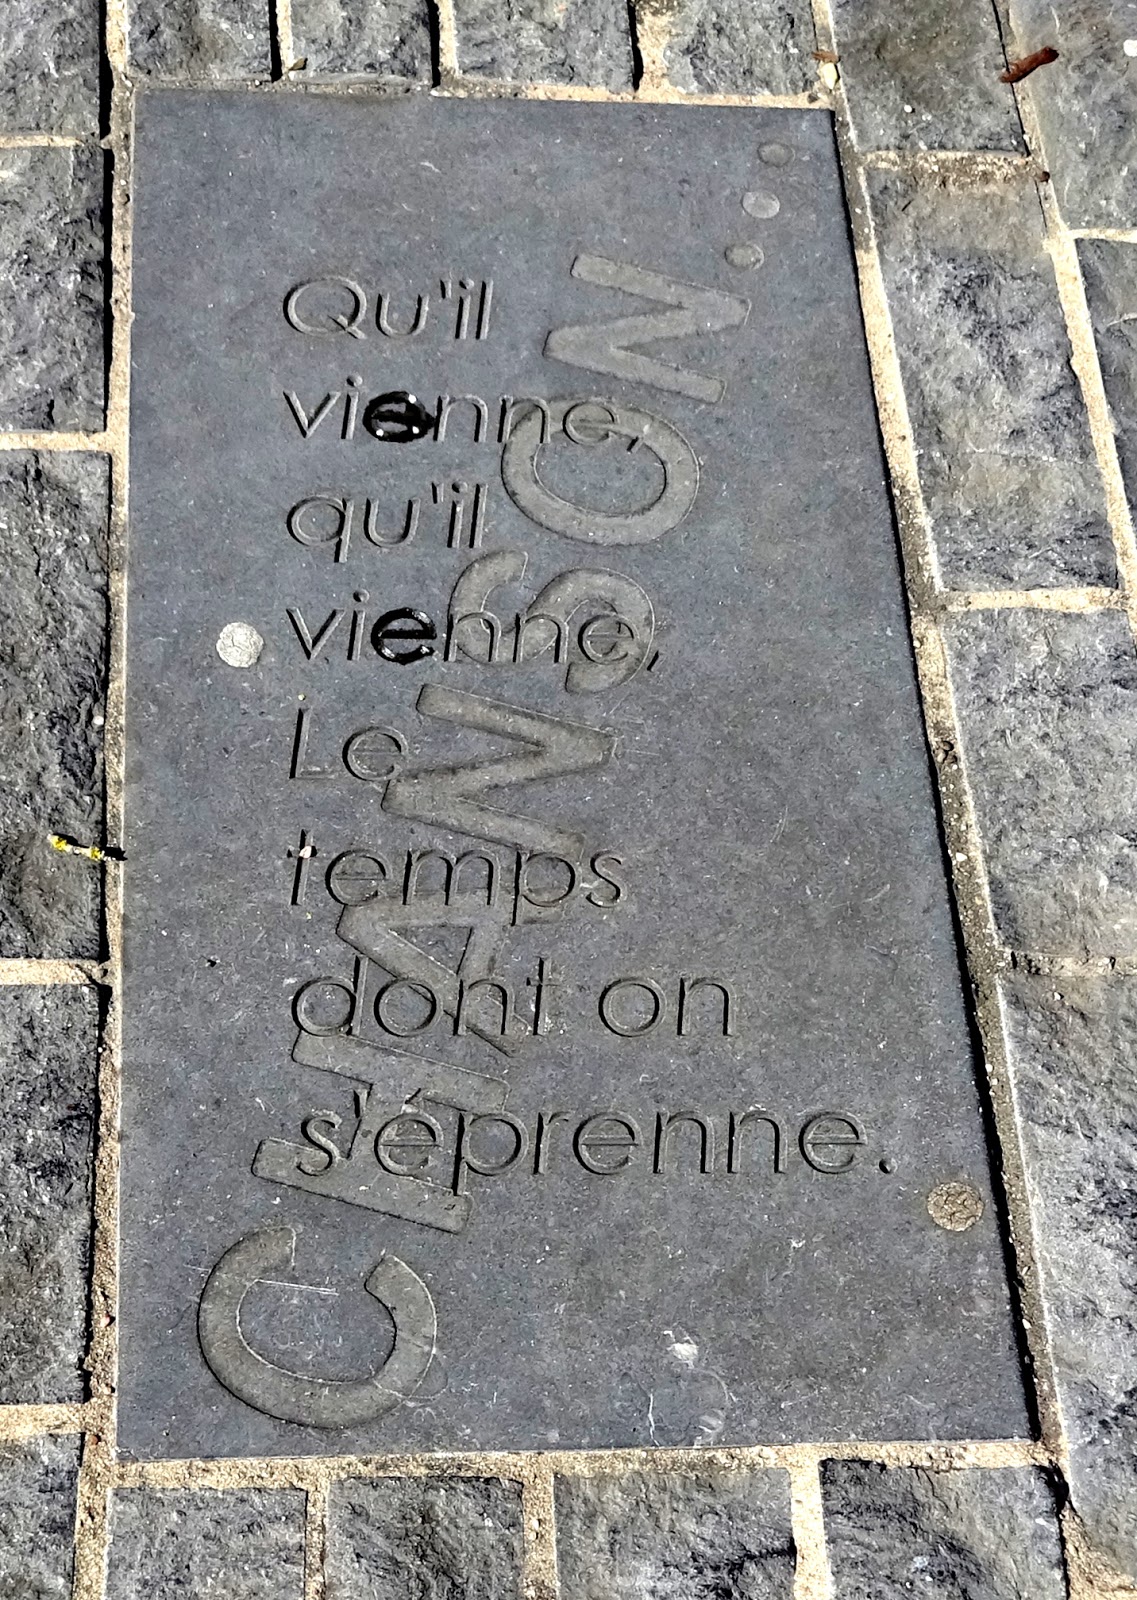 Qu'il
vienne,
qu'il
vienne,
Le
temps
dont on
s'éprenne.
CHANSON...